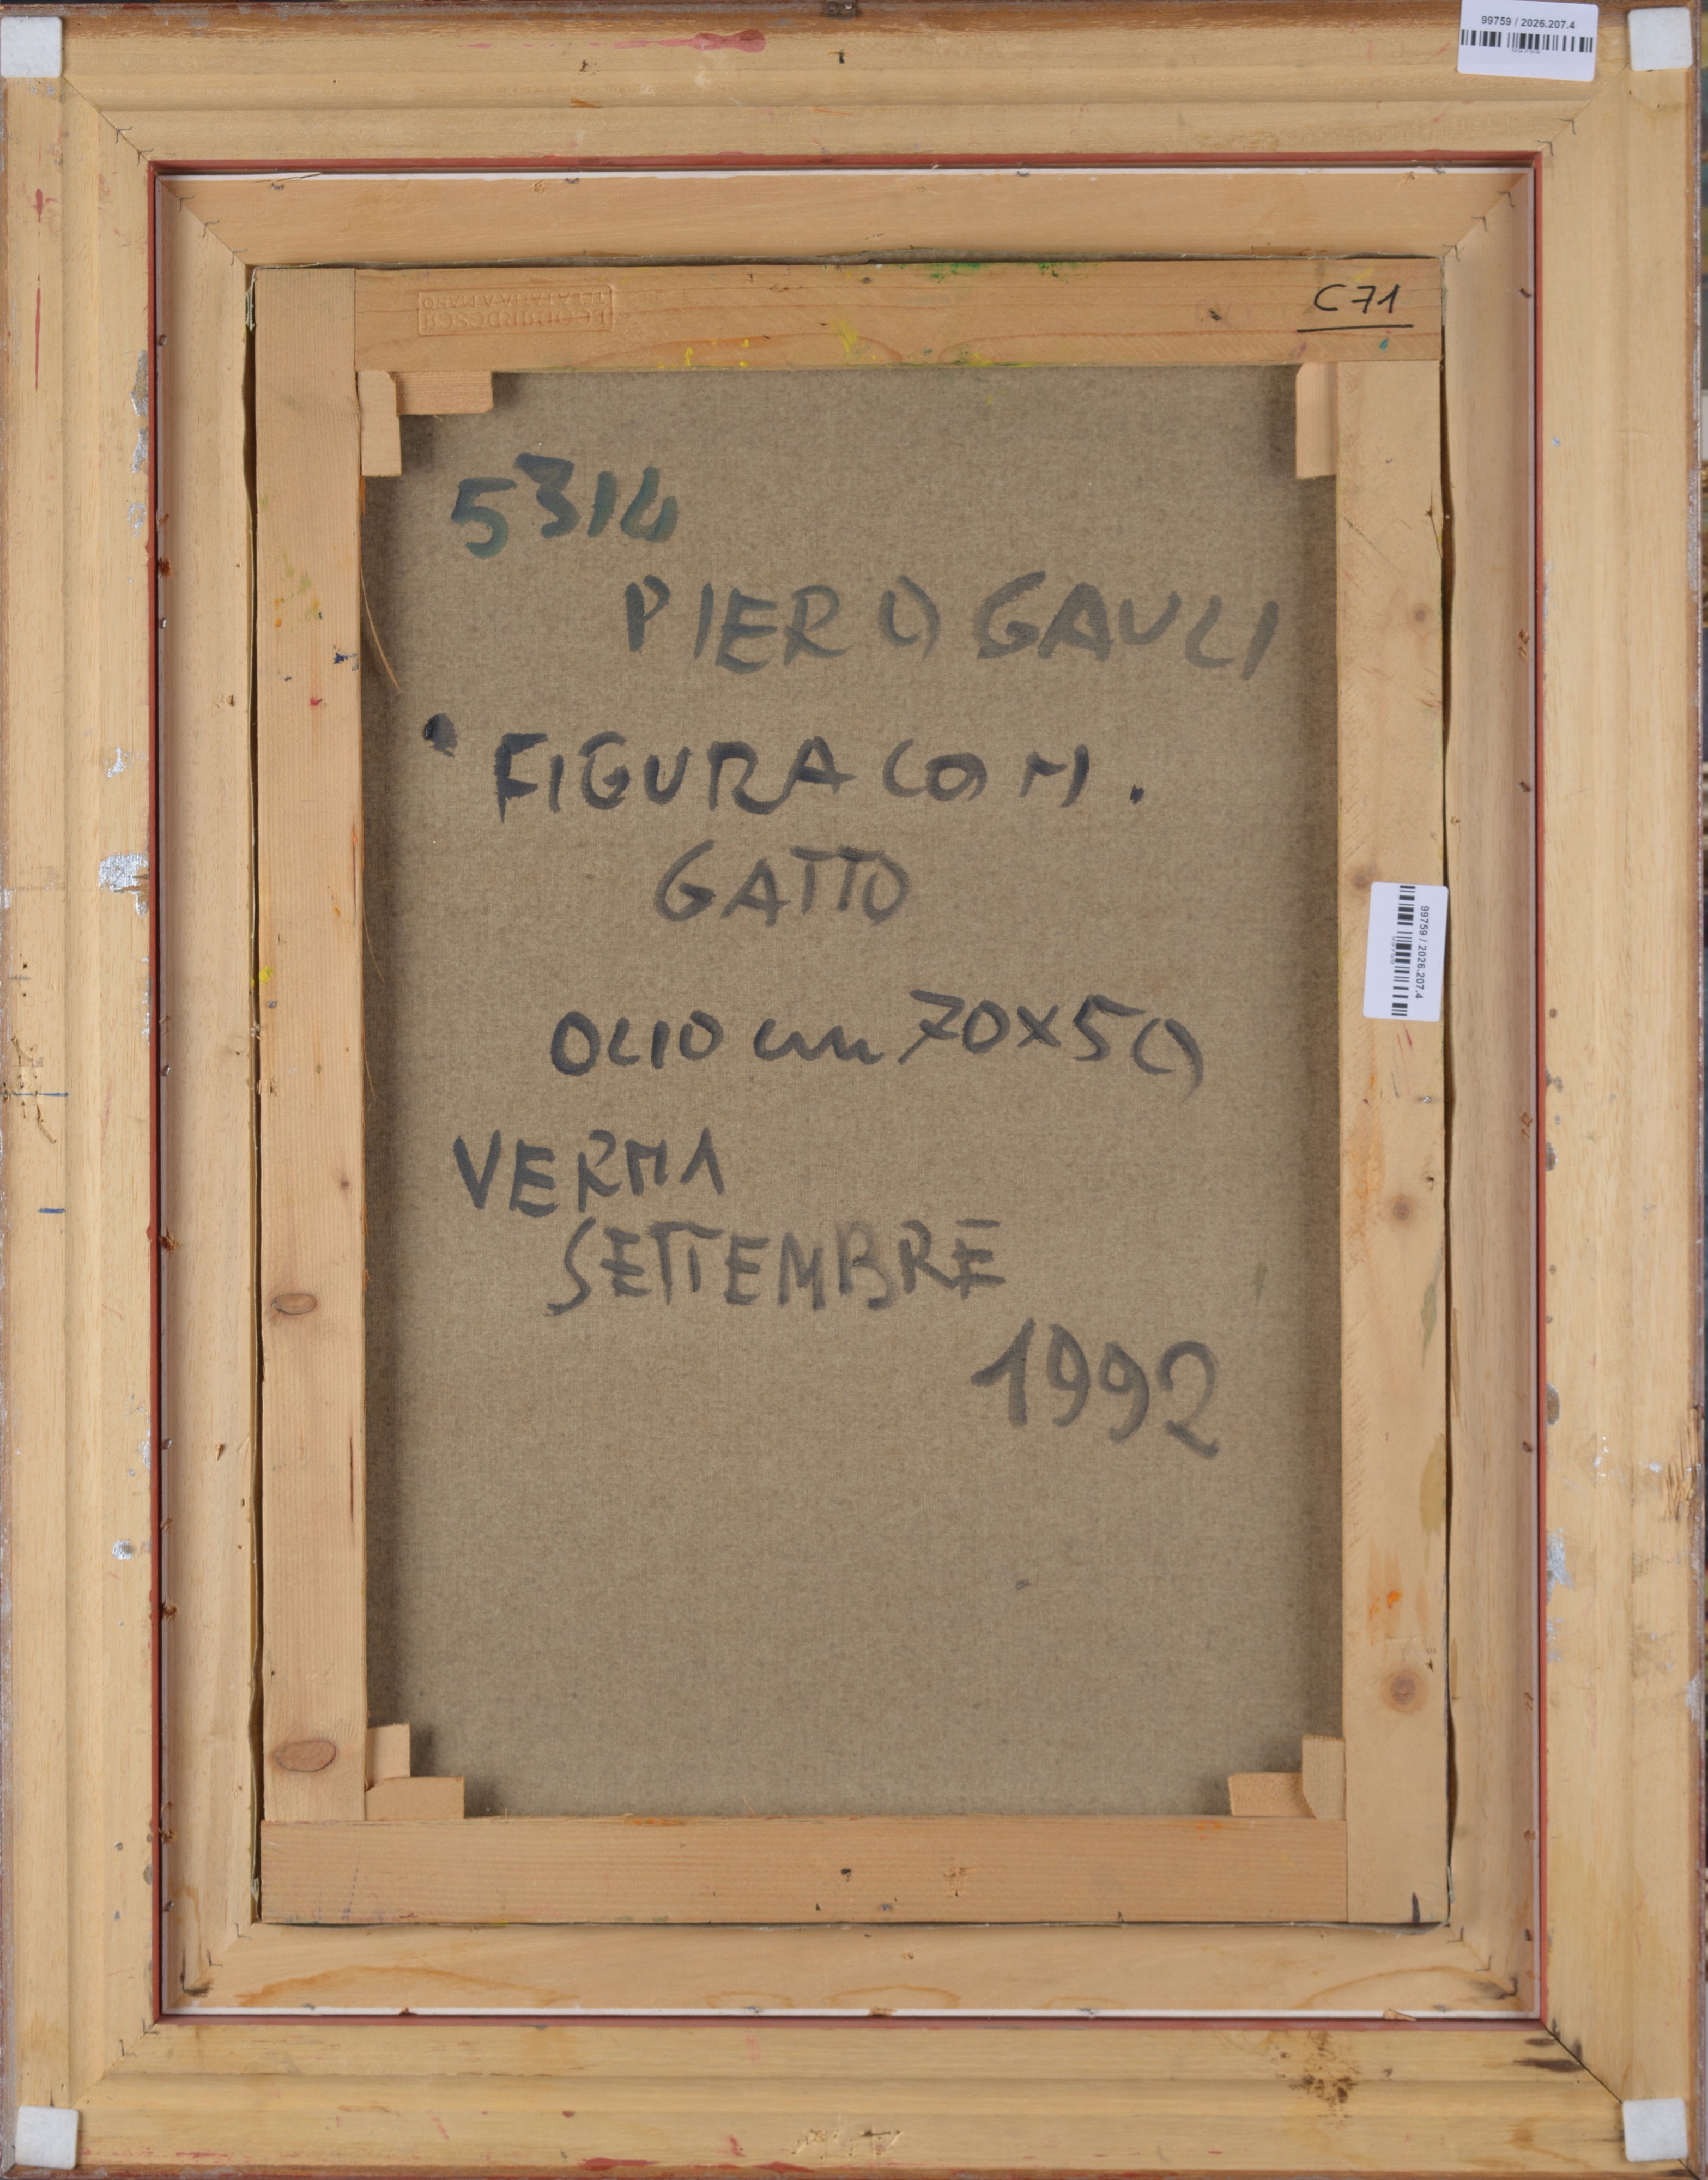 99759 / 2026.207.4
C71
5314
PIERO GAULI
FIGURA CON .
GATTO
OLIO cm 70X50
VERNA
SETTEMBRE
1992
99759 / 2026.207.4